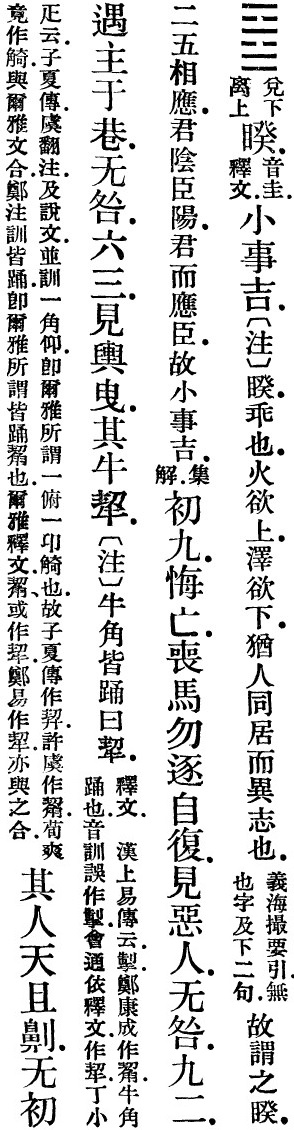 ䷥兌下离上睽。音圭。釋文。小事吉。〔注〕睽。乖也。火欲上。澤欲下。猶人同居而異志也。義海撮要引。無也字及下二句。故謂之睽。
二五相應。君陰臣陽。君而應臣。故小事吉。集解。初九。悔亡。喪馬勿逐自復。見惡人。无咎。九二。
遇主于巷。无咎。六三。見輿曳。其牛㸷。〔注〕牛角皆踊曰㸷。釋文。漢上易傳云。掣。鄭康成作觢。牛角踊也。音訓誤作掣。會通依釋文作㸷。丁小
疋云。子夏傳。虞翻注。及說文。並訓一角仰。卽爾雅所謂一俯一卬觭也。故子夏傳作契。許虞作觢。荀爽竟作觭。與爾雅文合。鄭注訓皆踊。卽爾雅所謂皆踊觢也。爾雅釋文。觢、或作㸷。鄭易作㸷。亦與之合。其人天且劓。无初